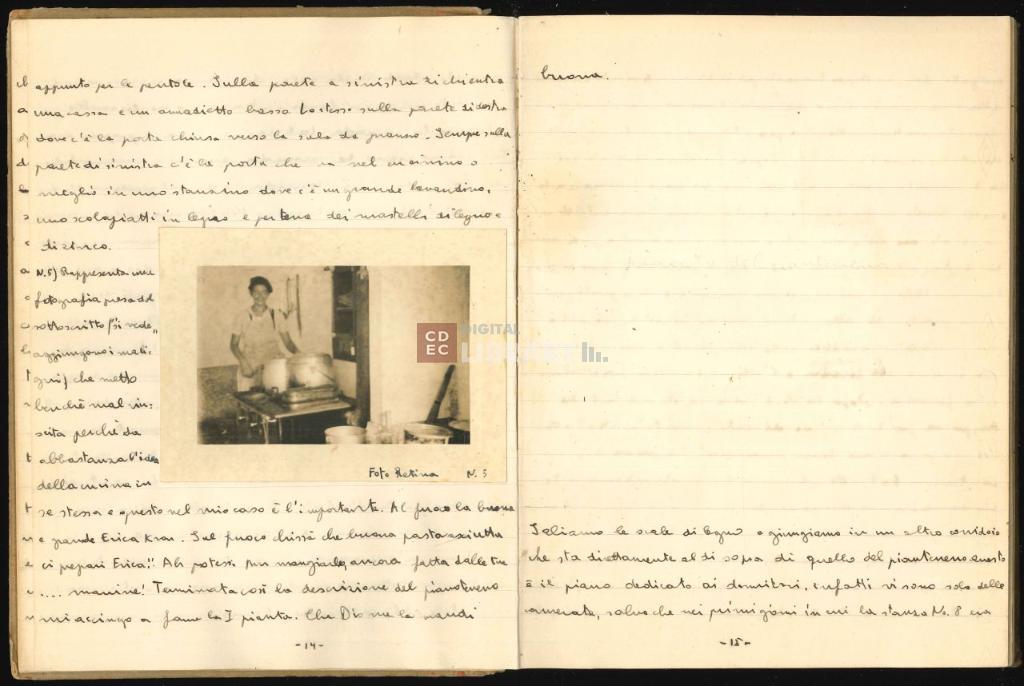 appunto per le pentole. Sulla parete a sinistra di chi entra
una cassa e un armadietto basso. Lo stesso sulla parete di destra
dove c'è la porta chiusa verso la sala da pranzo. Sempre sulla
parete di sinistra c'è la porta che va nel cucinino o
meglio in uno stanzino dove c'è un grande lavandino,
uno scolapiatti in legno e per terra dei mastelli di legno e
di zinco.
N.5) Rappresenta una
fotografia presa dal
sottoscritto (si vede,,
aggiungono i mali-
gni) che metto
benchè mal riu-
scita perchè da
abbastanza l'idea
della cucina in
se stessa e questo nel mio caso è l'importante. Al fuoco la buona
e grande Erica Kron. Sul fuoco chissà che buona pastasciutta
ci prepari Erica!! Ah potessi pur mangiarla, ancora fatta dalle tue
.... manine! Terminata così la descrizione del pianoterreno
mi accingo a farne la I pianta. Che Dio me la mandi
Foto Retina N. 5
-14-
buona.
Saliamo le scale di legno e giungiamo in un altro corridoio
che sta direttamente al di sopra di quello del pianterreno. Questo
è il piano dedicato ai dormitori, infatti vi sono solo delle
camerate, salvo che nei primi giorni in cui la stanza No. 8 era
-15-
CDEC
DIGITAL
LIBRARY